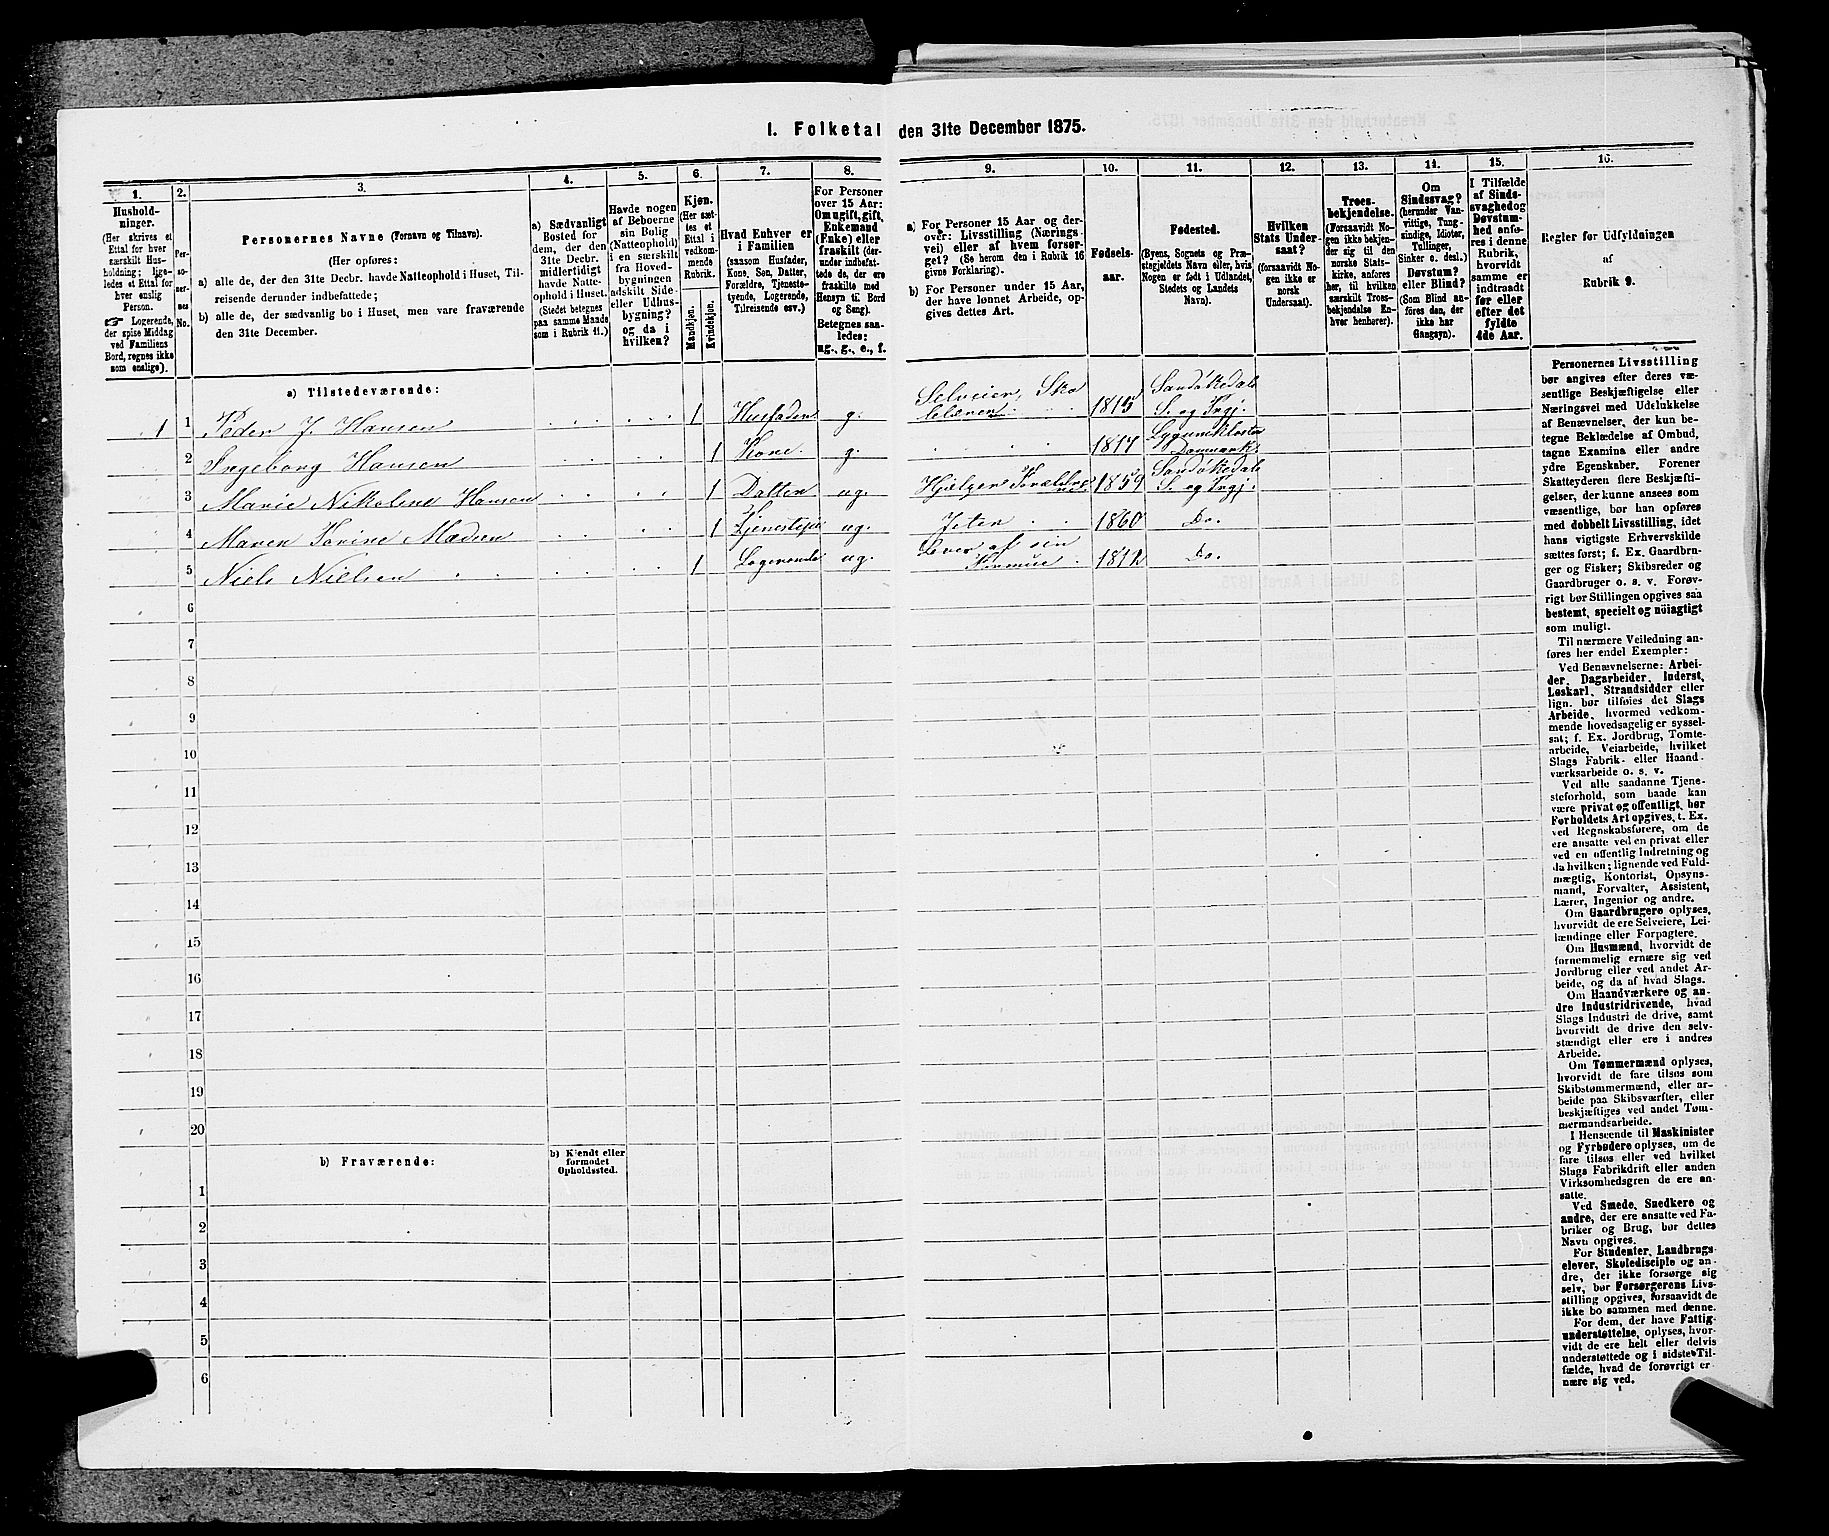 I. Folketal den 31te December 1875.
1.
Hushold-
ninger.
(Her skrives et
Ettal for hver
særskilt Hus-
holdning; lige-
ledes et Ettal for
hver enslig
Person.
☞ Logerende,
der spise Middag
ved Familiens
Bord, regnes ikke
som enslige).
2.
Per-
so-
ner-
nes
No.
3.
Personernes Navne (Fornavn og Tilnavn).
(Her opføres:
a) alle de, der den 31te Decbr. havde Natteophold i Huset, Til-
reisende derunder indbefattede;
b) alle de, der sædvanlig bo i Huset, men vare fraværende
den 31te December.
4.
a) Sædvanligt
Bosted for
dem, der den
31te Decbr.
midlertidigt
havde Natte-
ophold i Huset.
(Stedet betegnes
paa samme Maade
som i Rubrik 11.)
5.
Havde nogen
af Beboerne
sin Bolig
(Natteophold)
i en særskilt
fra Hoved-
bygningen
adskilt Side-
eller Udhus-
bygning?
og da i
hvilken?
6.
Kjøn.
(Her sæt-
tes et
Ettal i
vedkom-
mende
Rubrik.)
Mandkjøn.
Kvindekjøn.
7.
Hvad Enhver er
i Familien
(saasom Husfader,
Kone, Søn, Datter,
Forældre, Tjeneste-
tyende, Logerende,
Tilreisende osv.)
8.
For Personer
over 15 Aar:
Om ugift, gift,
Enkemand
(Enke) eller
fraskilt (der-
under indbefat-
tede de, der ere
fraskilte med
Hensyn til Bord
og Seng).
Betegnes saa-
ledes:
ug., g., e., f.
9.
a) For Personer 15 Aar og der-
over: Livsstilling (Nærings-
vei) eller af hvem forsør-
get? (Se herom den i Rubrik 16
givne Forklaring).
b) For Personer under 15 Aar,
der have lønnet Arbeide, op-
gives dettes Art.
10.
Fødsels-
aar.
11.
Fødested.
(Byens, Sognets og Præ-
stegjeldets Navn eller, hvis
Nogen er født i Udlandet,
Stedets og Landets
Navn).
12.
Hvilken
Stats Under-
saat?
(forsaavidt No-
gen ikke er
norsk
Undersaat).
13.
Troes-
bekjendelse.
(Forsaavidt No-
gen ikke bekjen-
der sig til den
norske Stats-
kirke, anføres
her, til hvilken
særskilt Troes-
bekjendelse En-
hver henhører).
14.
Om
Sindssvag?
(herunder Van-
vittige, Tung-
sindige, Idioter,
Tullinger,
Sinker o. desl.)
Døvstum?
eller Blind?
(Som Blind an-
føres den, der
ikke har
Gangsyn).
15.
I Tilfælde
af Sinds-
svaghed og
Døvstum-
hed anfø-
res i denne
Rubrik,
hvorvidt
samme er
indtraadt
før eller
efter det
fyldte
4de Aar.
16.
Regler for Udfyldningen
af
Rubrik 9.
a) Tilstedeværende:
1 1 Peder J. Hansen 1 Husfader g. Selveier, Sko lelærer 1815 Sandökedal S. og Prgj.
2 Ingeborg Hansen 1 Kone g. 1817 Lygumkloster Danmark
3 Marie Nikoline Hansen 1 Datter ug. Hjelper Forældrene 1859 Sandökedal S. og Prgj.
4 Maren Marie Madsen 1 Tjenestepie ug. Jeter 1860 Do.
5 Niels Nielsen 1 Logerende ug. Lever af sin Formue 1812 Do.
6
7
8
9
10
11
12
13
14
15
16
17
18
19
20
b) Fraværende:
b) Kjendt eller
formodet
Opholdssted.
1
2
3
4
5
6
Personernes Livsstilling
bør angives efter deres væ-
sentlige Beskjæftigelse eller
Næringsvei med Udelukkelse
af Benævnelser, der kun be-
tegne Beklædelse af Ombud,
tagne Examina eller andre
ydre Egenskaber. Forener
Skatteyderen flere Beskjæfti-
gelser, der kunne ansees som
væsentlige, bør han opføres
med dobbelt Livsstilling, idet
hans vigtigste Erhvervskilde
sættes først; f. Ex. Gaardbru-
ger og Fisker; Skibsreder og
Gaardbruger o. s. v. Forøv-
rigt bør Stillingen opgives saa
bestemt, specielt og nøiagtigt
som muligt.
Til nærmere Veiledning an-
føres her endel Exempler:
Ved Benævnelserne: Arbei-
der, Dagarbeider, Inderst,
Løskarl, Strandsidder eller
lign. bør tilføies det Slags
Arbeide, hvormed vedkom-
mende hovedsagelig er syssel-
sat; f. Ex. Jordbrug, Tomte-
arbeide, Veiarbeide, hvilket
Slags Fabrik- eller Haand-
værksarbeide o. s. v.
Ved alle saadanne Tjene-
steforhold, som baade kan
være privat og offentligt, bør
Forholdets Art opgives, t. Ex.
ved Regnskabsførere, om de
ere ansatte ved en privat eller
ved en offentlig Indretning og
da hvilken; lignende ved Fuld-
mægtig, Kontorist, Opsyns-
mand, Forvalter, Assistent,
Lærer, Ingeniør og andre.
Om Gaardbrugere oplyses,
hvorvidt de ere Selveiere, Lei-
lændinge eller Forpagtere.
Om Husmænd, hvorvidt de
fornemmelig ernære sig ved
Jordbrug eller ved andet Ar-
beide, og da af hvad Slags.
Om Haandværkere og an-
dre Industridrivende, hvad
Slags Industri de drive, samt
hvorvidt de drive den selv-
stændigt eller ere i andres
Arbeide.
Om Tømmermænd oplyses,
hvorvidt de fare tilsøs som
Skibstømmermænd, eller ar-
beide paa Skibsværfter, eller
beskjæftiges ved andet Tøm-
mermandsarbeide.
I Henseende til Maskinister
og Fyrbødere oplyses, om de
fare tilsøs eller ved hvilket
Slags Fabrikdrift eller anden
Virksomhedsgren de ere an-
satte.
Ved Smede, Snedkere og
andre, der ere ansatte ved Fa-
briker og Brug, bør dettes
Navn opgives.
For Studenter, Landbrugs-
elever, Skoledisciple og an-
dre, der ikke forsørge sig
selv, bør Forsørgerens Livs-
stilling opgives, forsaavidt de
ikke bo sammen med denne.
For dem, der have Fattig-
understøttelse, oplyses, hvor-
vidt de ere helt eller delvis
understøttede og i sidste Til-
fælde, hvad de forøvrigt er-
nære sig ved.